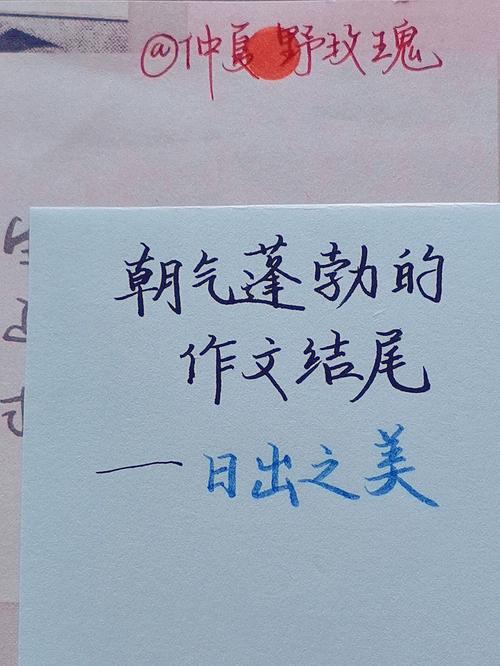 @仲夏野玫瑰
朝气蓬勃的
作文结尾
—日出之美